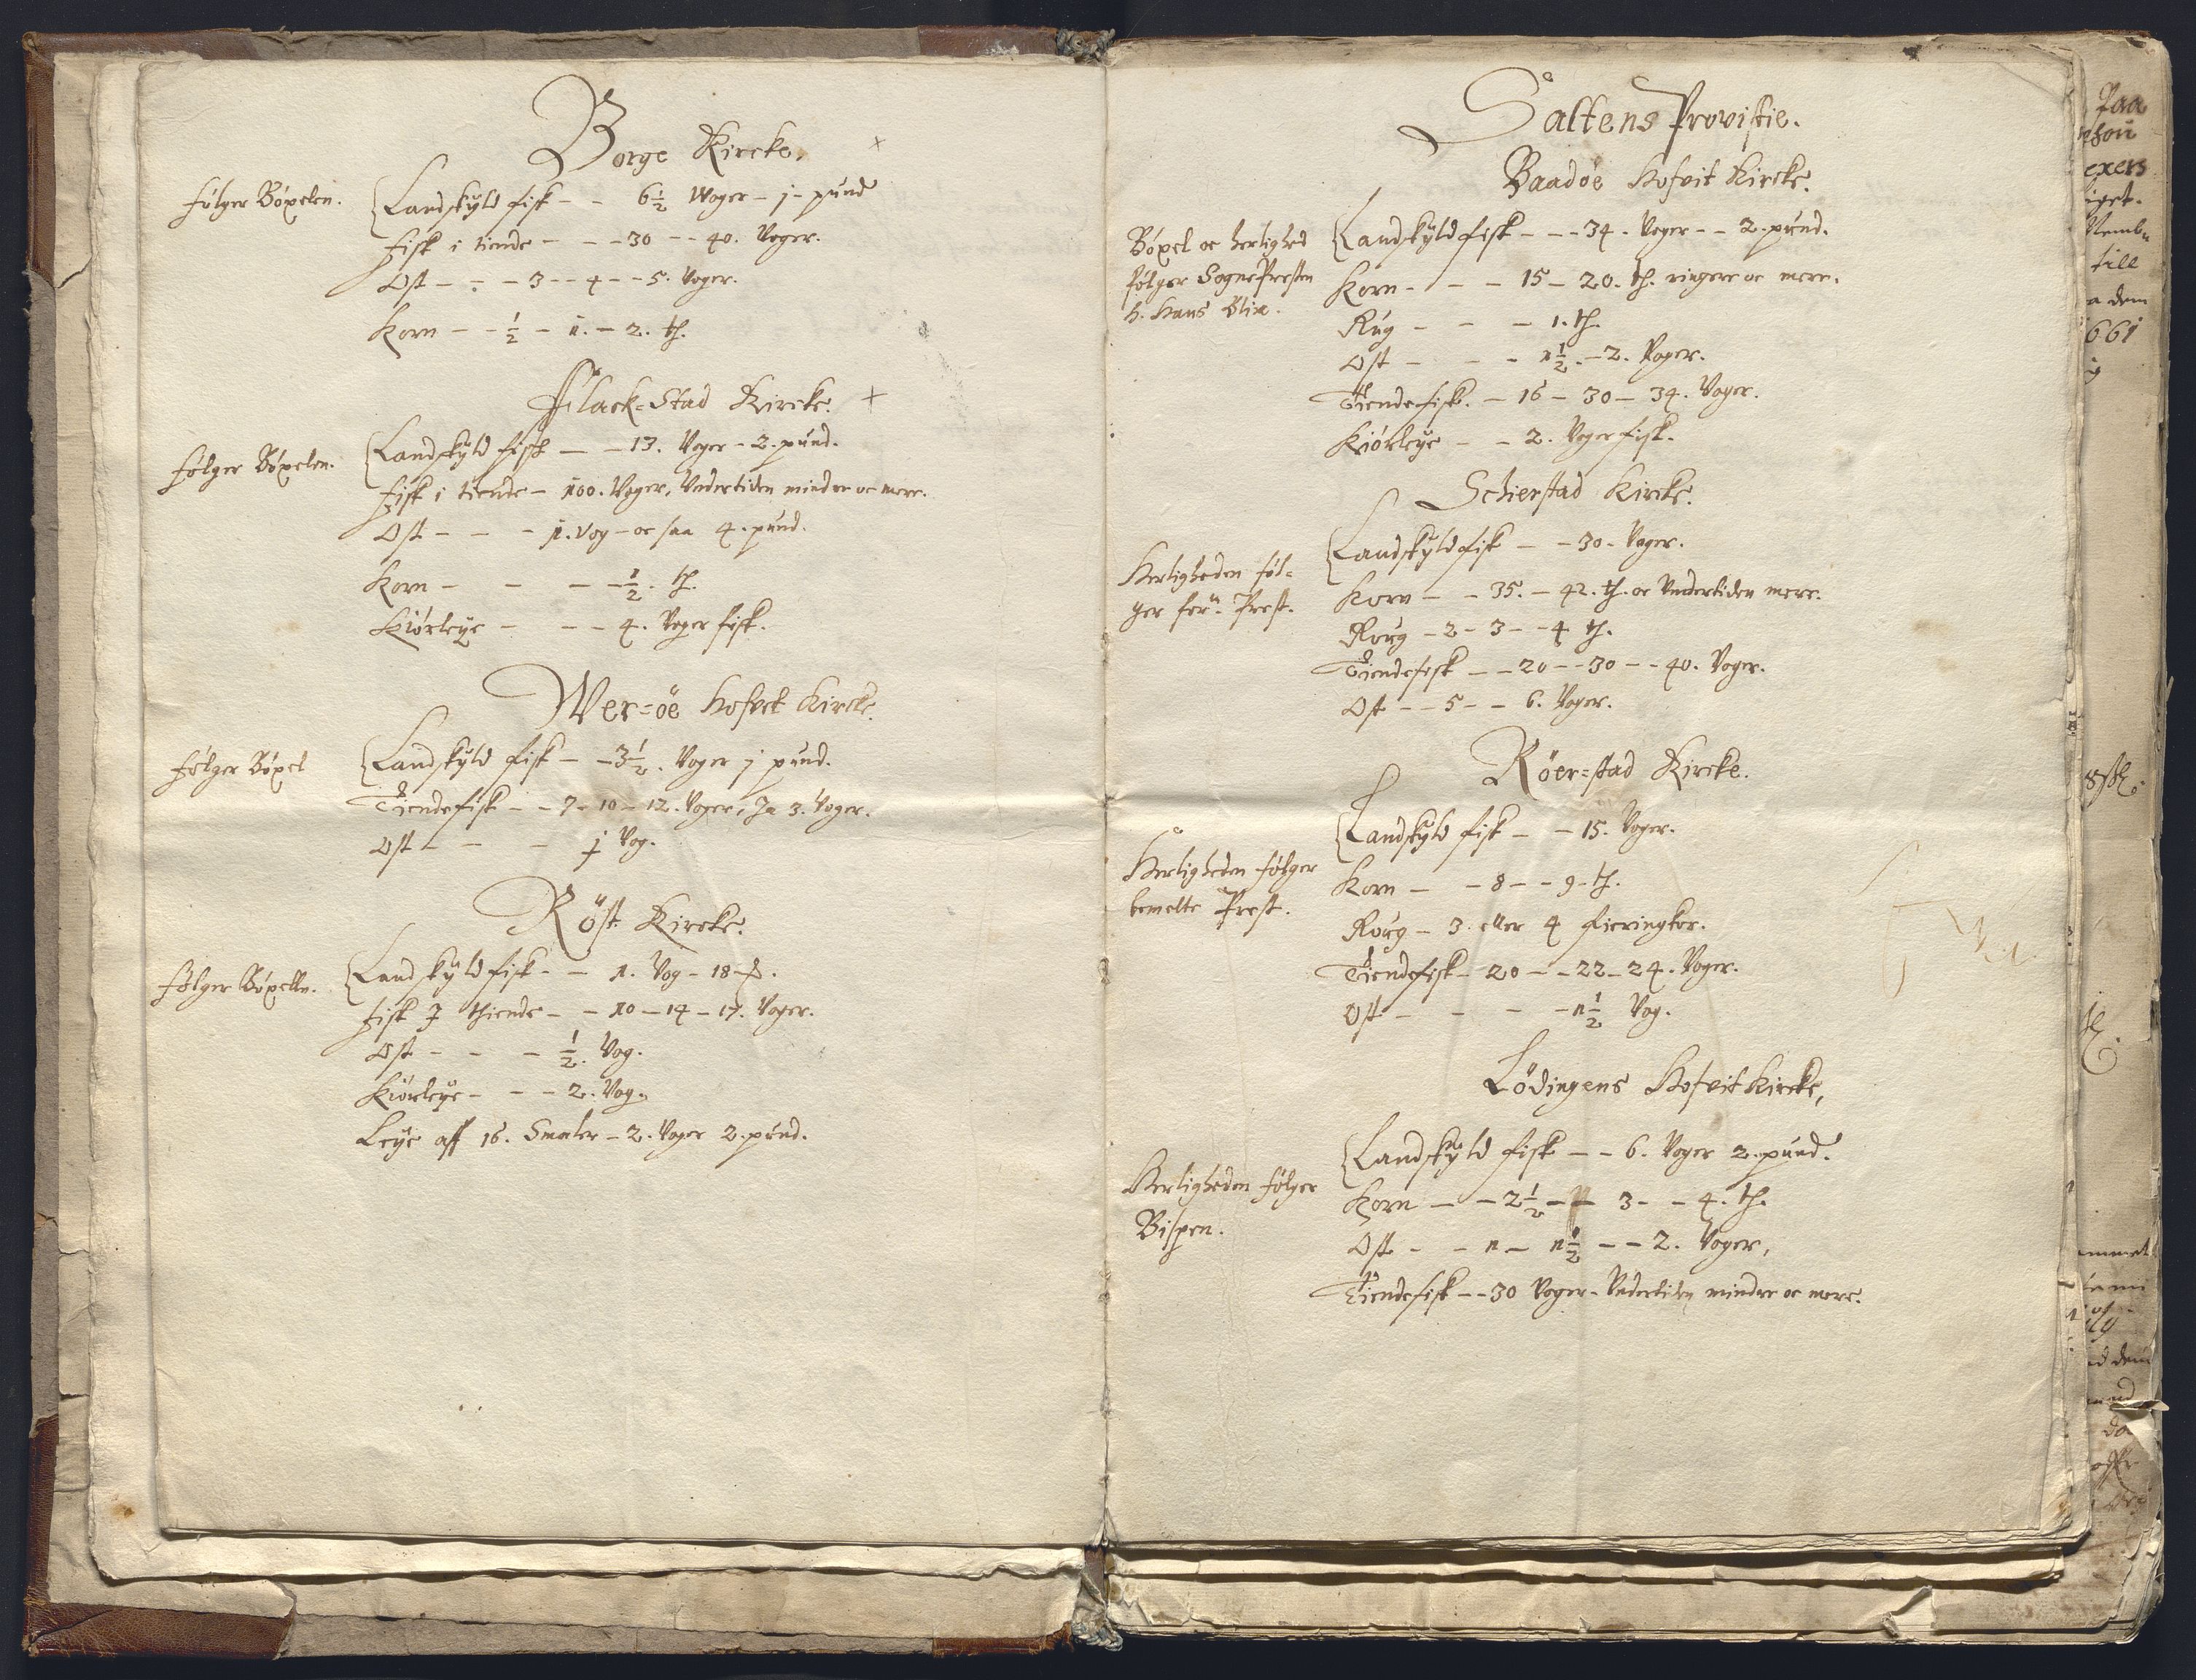 Borge Kircke.
følger Böxelen.
Landskÿld fisk - - 6½ Woger - j - pund
fisk i tiende - - - 30 - - 40. Voger.
Ost - - - 3 - - 4 - - 5. Voger.
Korn - - ½ - 1. - 2. tħ.
Flack-Stad Kircke.
følger Böxelen.
Landskÿld fisk - - 13. Voger - 2. pund.
fisk i tiende - 100. Voger, Vndertiden mindre oc mere.
Ost - - - 1. Vog - oc saa 4. pund.
Korn - - - - ½. tħ.
Kiörleÿe - - - 4. Voger fisk.
Wer-öe Hofvet Kircke.
følger Böxel
Landskÿld fisk - - 3½. Voger j pund.
Tiendefisk - - 7 - 10 - 12. Voger, Ja 3. Voger.
Ost - - - j Vog.
Röst Kircke.
følger Böxelln.
Landskÿld fisk - - 1. Vog - 18
fisk J thiende - - 10 - 14 - 17. Voger.
Ost - - - ½. Vog.
Kiörleÿe - - - 2. Vog.
Leÿe aff 16. Smaler - 2. Voger 2. pund.
Saltens Provistie.
Baadöe Hofvit Kircke.
Böxel oc herlighed
følger SognePresten
h. Hans Blix.
Landskÿld fisk - - - 34. Voger - - 2. pund.
Korn - - - 15 - 20. tħ. ringere oc mere.
Rug - - - 1. tħ.
Ost - - - 1½. - 2. Voger.
Tiendefisk. - 16 - 30 - 34. Voger.
Kiörleÿe - - 2. Voger fisk.
Schierstad Kircke.
Herligheden föl-
ger Prest.
Landskÿld fisk - - 30. Voger.
Korn - - 35. - 42. tħ. oc Vndertiden mere.
Roug - 2 - 3 - - 4 tħ.
Tiendefisk - - 20 - - 30 - - 40. Voger.
Ost - - 5 - - 6. Voger.
Röer-stad Kircke.
Herligheden følger
bemelte Prest.
Landskÿld fisk - - 15. Voger.
Korn - - 8 - - 9. tħ.
Roug - 3. eller 4 fieringker.
Tiendefisk - 20 - - 22 - 24. Voger.
Ost - - - - 1½ Vog.
Lödingens Hofvit Kircke,
Herligheden følger
Bispen.
Landskÿld fisk - - 6. Voger 2. pund.
Korn - - 2½ - - 3 - - 4. tħ.
Ost - - 1 - 1½ - - 2. Voger,
Tiendefisk - - 30 Voger - Vndertiden mindre oc mere.